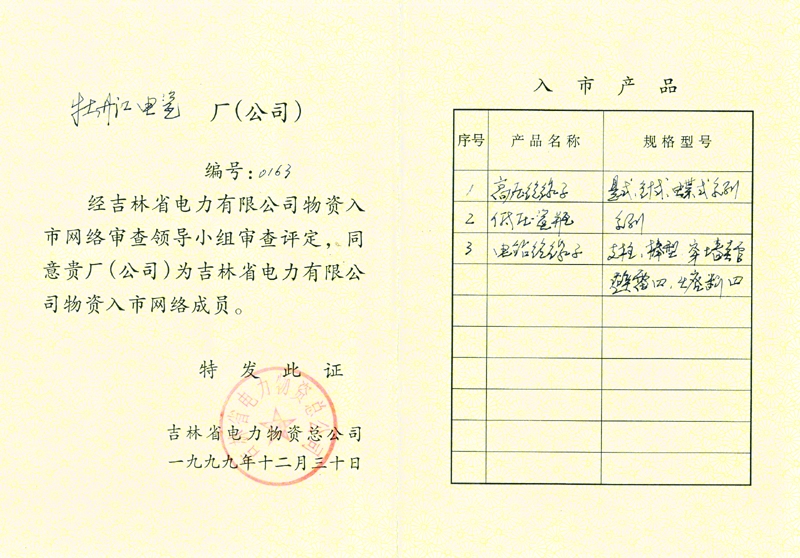 牡丹江电瓷 厂(公司)
编号:0163
经吉林省电力有限公司物资入
市网络审查领导小组审查评定,同
意贵厂(公司)为吉林省电力有限公
司物资入市网络成员。
特发此证
吉林省电力物资总公司
一九九九年十二月三十日
吉林省电力物资总公司
入市产品
序号 产品名称 规格型号
1 高压绝缘子 悬式、针式、蝶式系列
2 低压瓷瓶 系列
3 电站绝缘子 支柱、棒型 穿墙套管